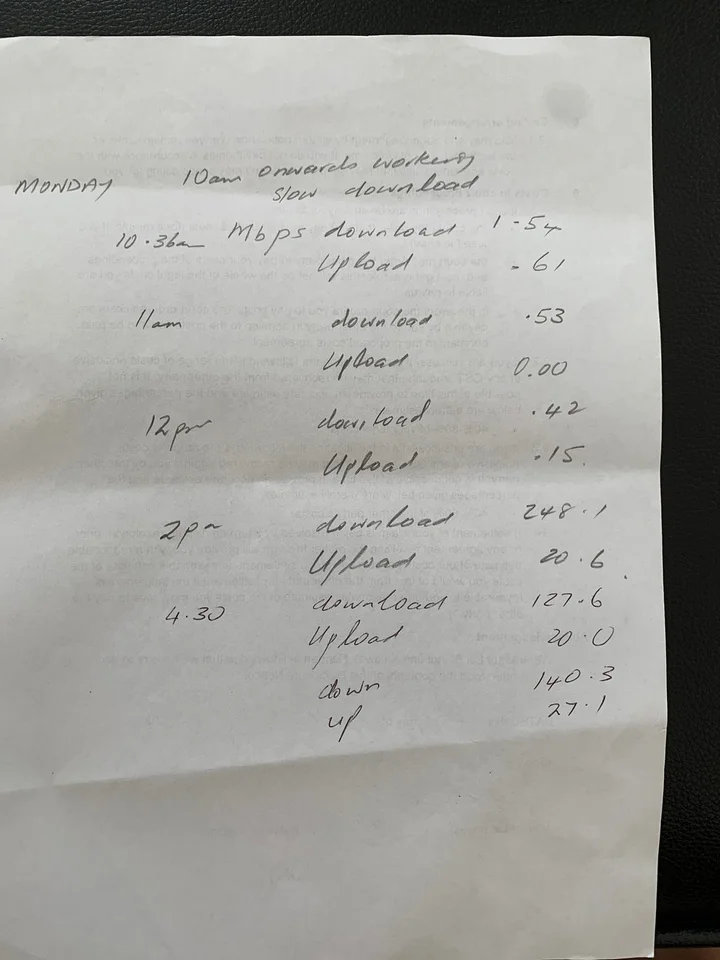 10am onwards working
MONDAY slow download
10.36am Mbps download 1.54
Upload .61
11am download .53
Upload 0.00
12pm download .42
Upload .15
2pm download 248.1
Upload 20.6
4.30 download 127.6
Upload 20.0
down 140.3
up 27.1